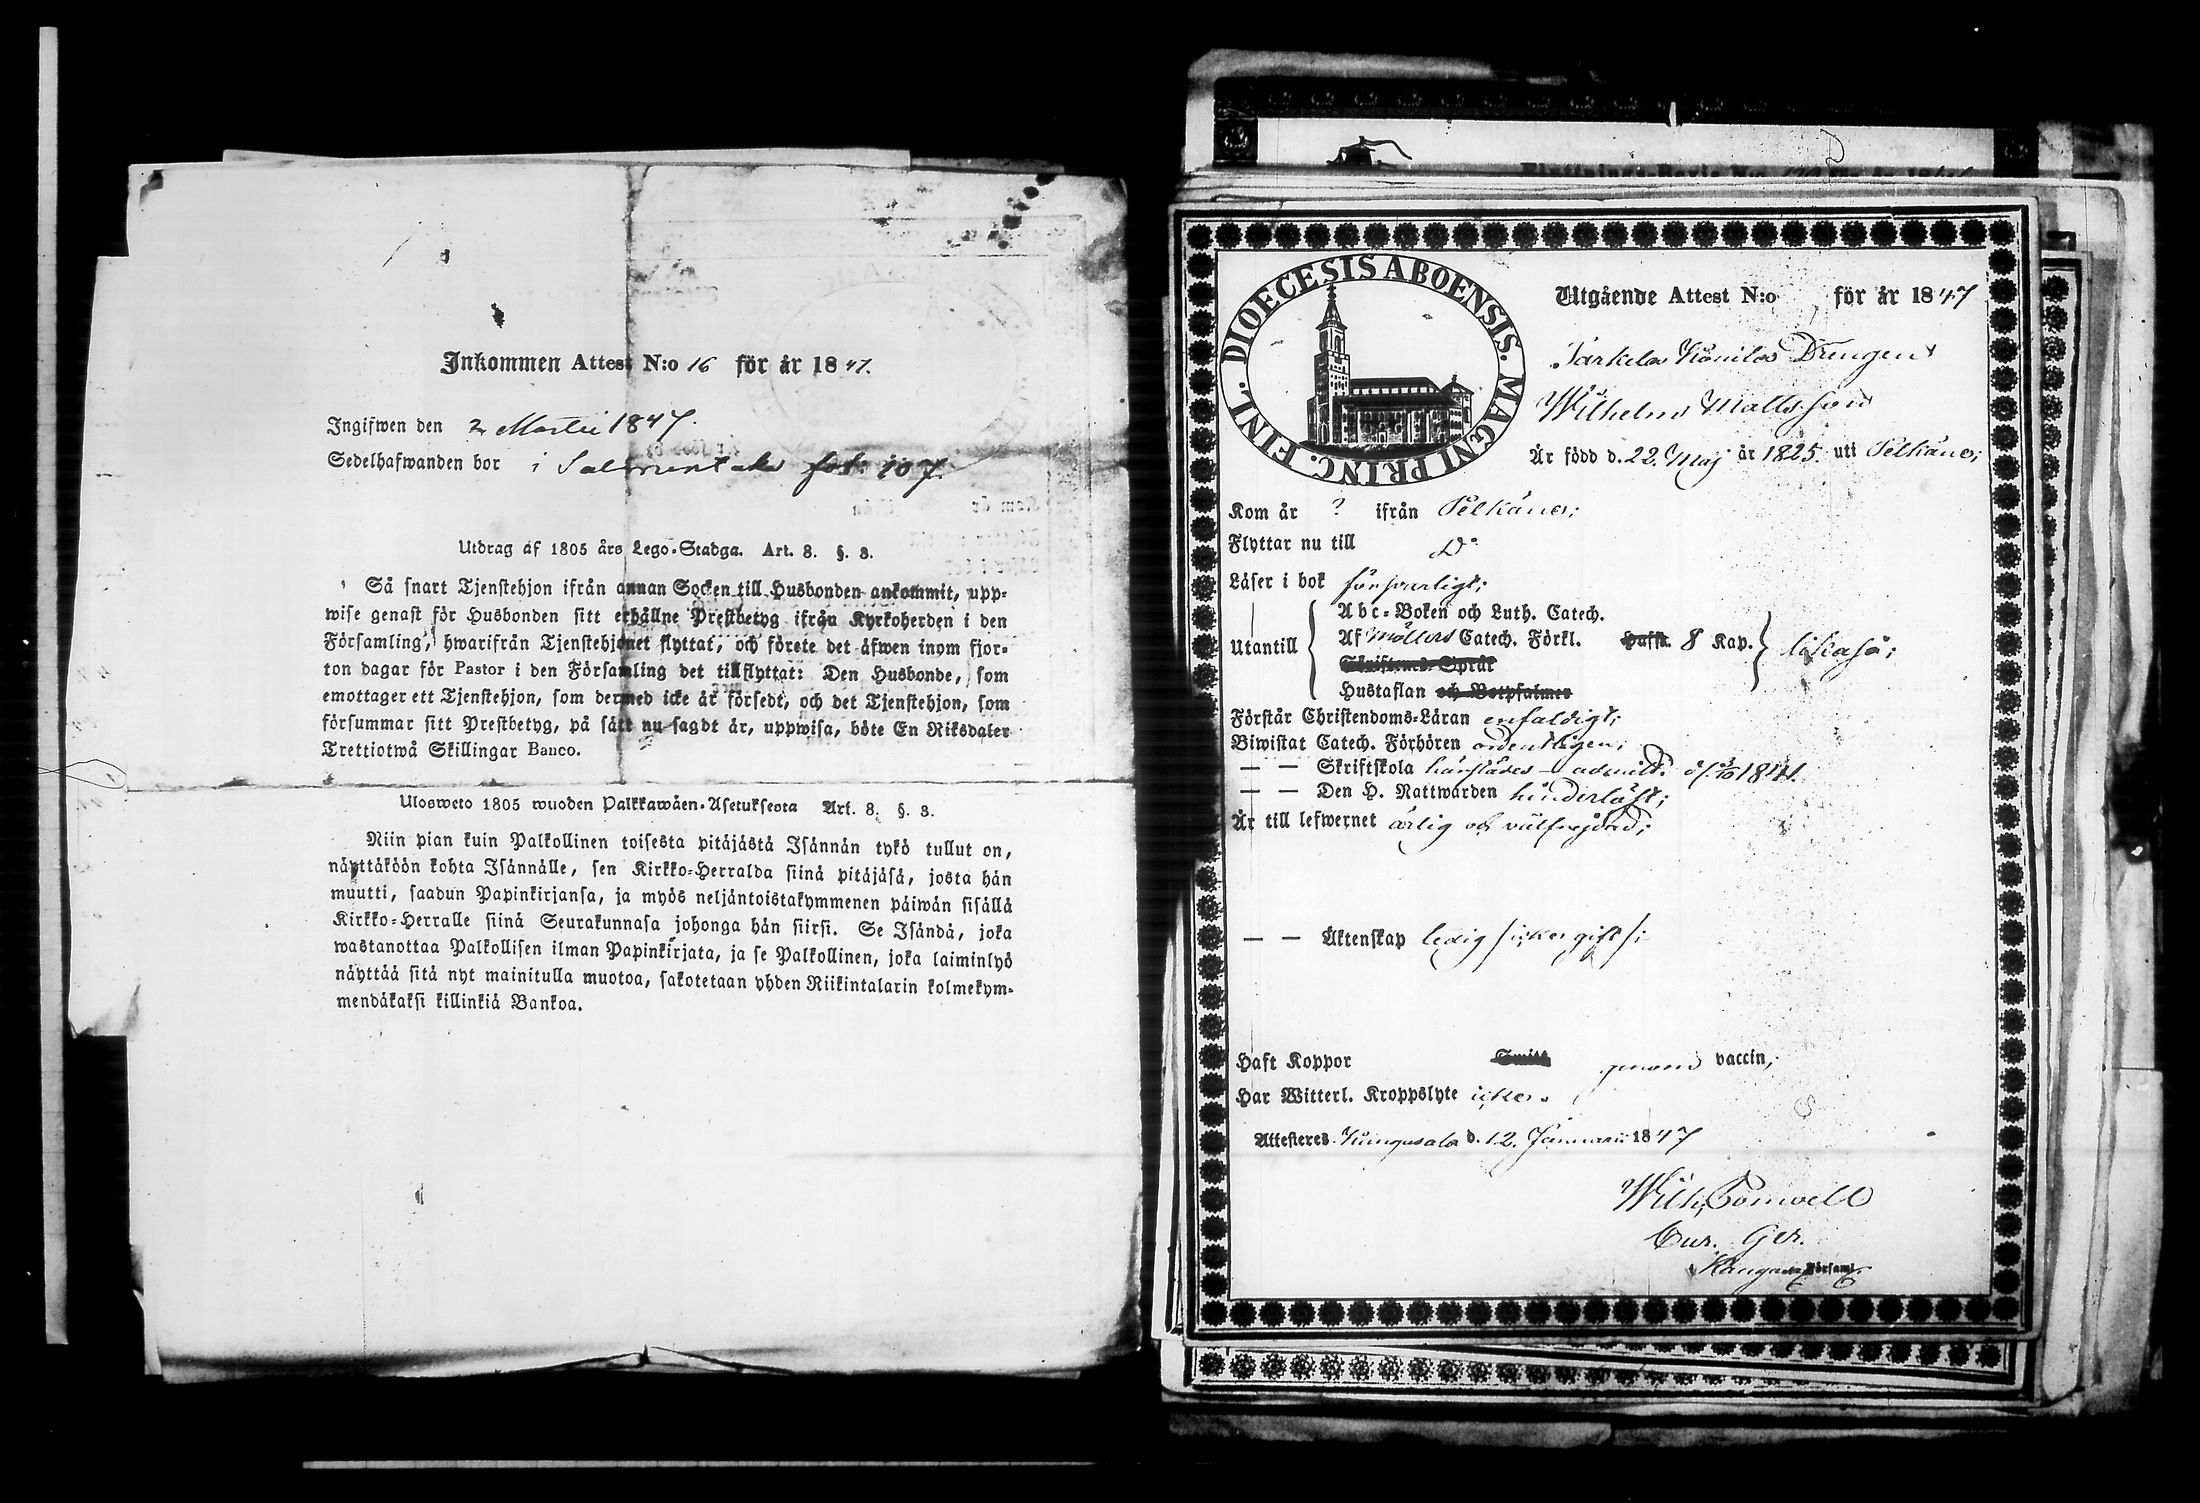 Inkommen Attest N:o 16 för år 1847.
Ingifwen den 2 Martii 1847.
Sedelhafwanden bor i Salmentaka fol: 107.
Utdrag af 1805 års Lego-Stadga. Art. 8. §. 3.
Så snart Tjenstehjon ifrån annan Socken till Husbonden ankommit, upp-
wise genast för Husbonden sitt erhållne Prestbetyg ifrån Kyrkoherden i den
Församling, hwarifrån Tjenstehjonet flyttat, och förete det äfwen inom fjor-
ton dagar för Pastor i den Församling det tillflyttat: Den Husbonde, som
emottager ett Tjenstehjon, som dermed icke är försedt, och det Tjenstehjon, som
försummar sitt Prestbetyg, på sätt nu sagdt är, uppwisa, böte En Riksdaler
Trettiotwå Skillingar Banco.
Ulosweto 1805 wuoden Palkkawäen-Asetuksesta Art. 8. §. 3.
Niin pian kuin Palkollinen toisesta pitäjästä Isännän tykö tullut on,
näyttäköön kohta Isännälle, sen Kirkko-Herralda siinä pitäjäsä, josta hän
muutti, saadun Papinkirjansa, ja myös neljäntoistakymmenen päiwän sisällä
Kirkko-Herralle siinä Seurakunnasa johonga hän siirsi. Se Isändä, joka
wastanottaa Palkollisen ilman Papinkirjata, ja se Palkollinen, joka laiminlyö
näyttää sitä nyt mainitulla muotoa, sakotetaan yhden Riikintalarin kolmekym-
mendäkaksi killinkiä Bankoa.
FINL. DIOECESIS ABOENSIS. MAGNI PRINC.
Utgående Attest N:o för år 1847
Drengen
Wilhelm Matts son
Är född d. 22. Maj år 1825. uti Pelkäne;
Kom år ? ifrån Pelkäne;
Flyttar nu till Do
Läser i bok försvarligt;
Abc-Boken och Luth. Catech.
Utantill Af Möllers Catech. Förkl. Hafst. 8 Kap. likaså;
Skriftens Språk
Hustaflan och Botpsalmer
Förstår Christendoms-Läran enfaldigt;
Biwistat Catech. Förhören ordentligen;
— — Skriftskola härstädes admitt. 1841.
— — Den H. Nattwarden hinderlöst;
Är till lefwernet ärlig och välfrejdad;
— — Äktenskap ledig /: icke gift :/
Haft Koppor Smitt genom vaccin,
Har Witterl. Kroppslyte icke.
Attesteres Kangasala d. 12. Januarii 1847
Wilh.
Cur. Ger.
Kangasala Församl.